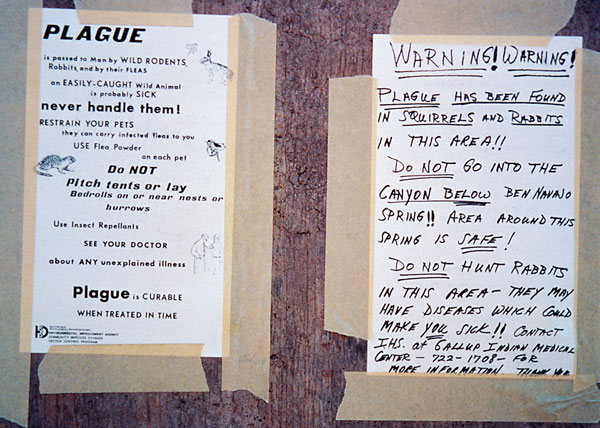 PLAGUE
is passed to Man by WILD RODENTS,
Rabbits, and by their FLEAS
an EASILY-CAUGHT Wild Animal
is probably SICK
never handle them!
RESTRAIN YOUR PETS
they can carry infected fleas to you
USE Flea Powder
on each pet
Do NOT
Pitch tents or lay
Bedrolls on or near nests or
burrows
Use Insect Repellants
SEE YOUR DOCTOR
about ANY unexplained illness
Plague is CURABLE
WHEN TREATED IN TIME
ENVIRONMENTAL IMPROVEMENT AGENCY
COMMUNITY SERVICES DIVISION
VECTOR CONTROL PROGRAM
WARNING! WARNING!
PLAGUE HAS BEEN FOUND
IN SQUIRRELS AND RABBITS
IN THIS AREA!!
DO NOT GO INTO THE
CANYON BELOW BEN NAVAJO
SPRING!! AREA AROUND THIS
SPRING IS SAFE!
DO NOT HUNT RABBITS
IN THIS AREA - THEY MAY
HAVE DISEASES WHICH COULD
MAKE YOU SICK!! CONTACT
I.H.S. at GALLUP INDIAN MEDICAL
CENTER - 722-1708 - FOR
MORE INFORMATION. THANK YOU